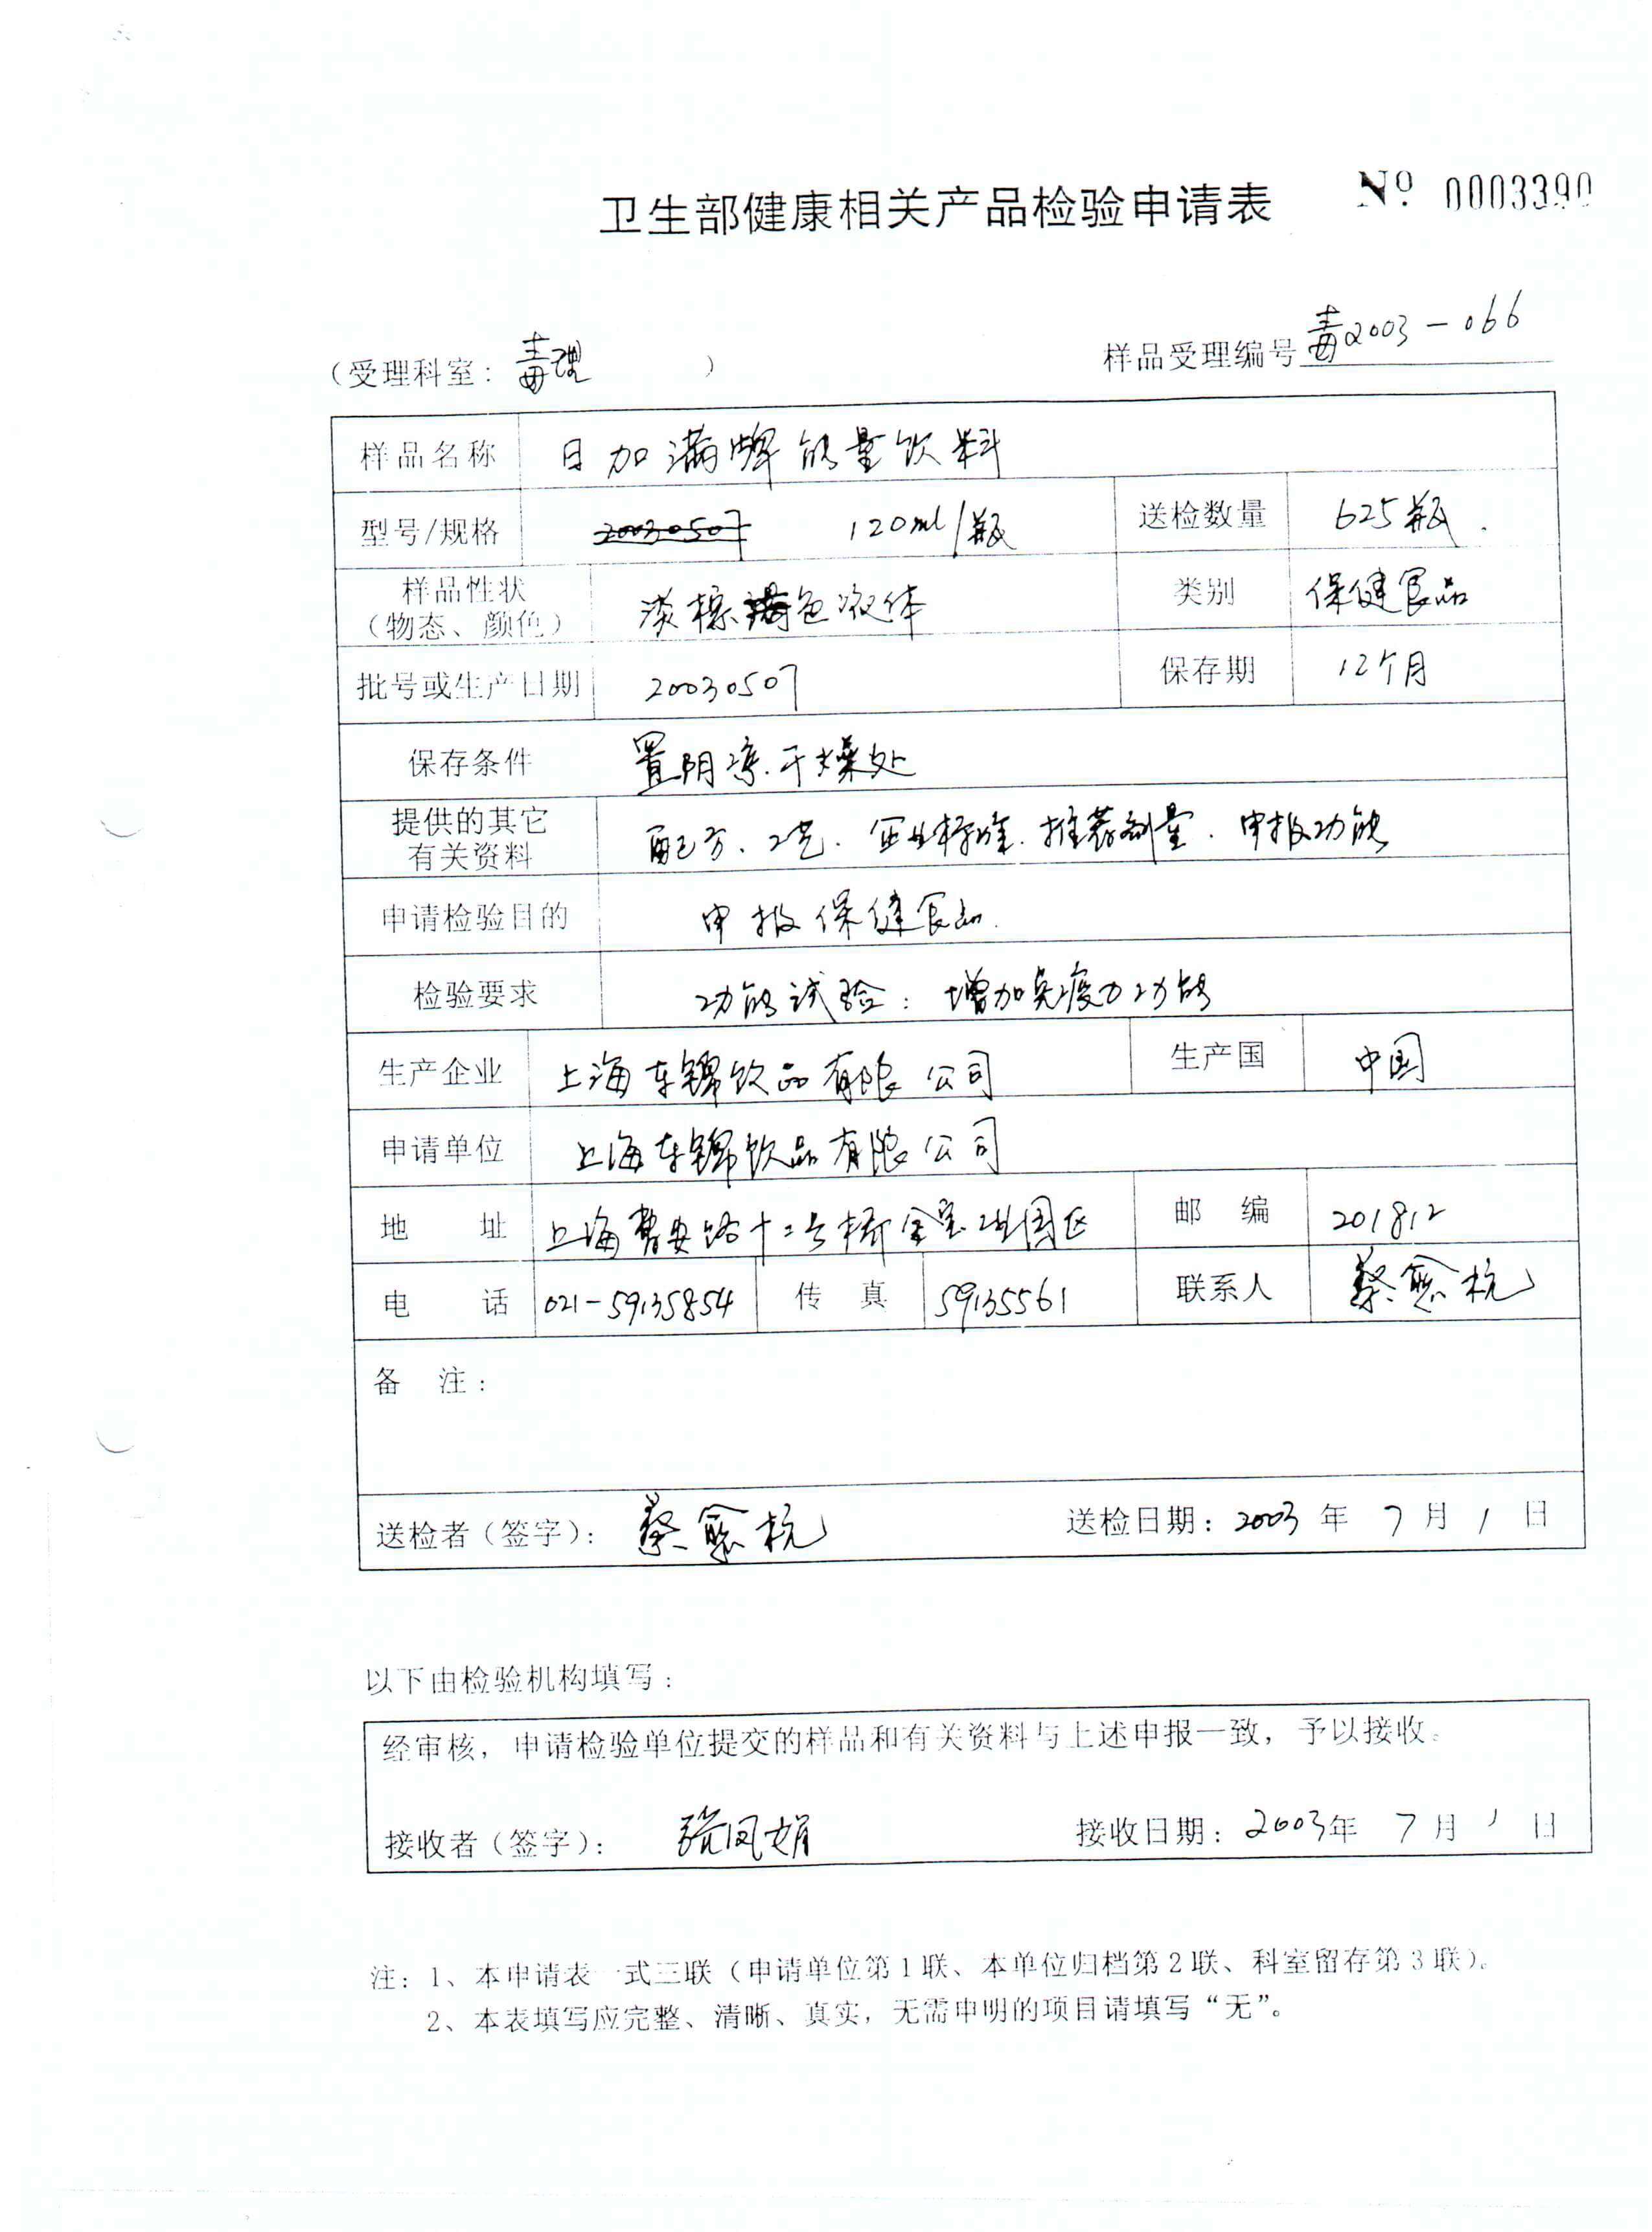 卫生部健康相关产品检验申请表 № 0003390
（受理科室：毒理 ） 样品受理编号 毒2003-066
样品名称 日加满牌能量饮料
型号/规格 20030507 120ml/瓶 送检数量 625瓶.
样品性状
（物态、颜色） 淡棕色液体 类别 保健食品
批号或生产日期 20030507 保存期 12个月
保存条件 置阴凉.干燥处
提供的其它
有关资料 配方、工艺、企业标准.推荐剂量.申报功能
申请检验目的 申报保健食品.
检验要求 功能试验：增加免疫力功能
生产企业 上海东锦饮品有限公司 生产国 中国
申请单位 上海东锦饮品有限公司
地 址 上海曹安路十二号桥金宝工业园区 邮 编 201812
电 话 021-59135854 传 真 59135561 联系人 蔡
备 注：
送检者（签字）： 蔡 送检日期：2003 年 7 月 1 日
以下由检验机构填写：
经审核，申请检验单位提交的样品和有关资料与上述申报一致，予以接收。
接收者（签字）： 张凤娟 接收日期：2003年 7 月 1 日
注：1、本申请表一式三联（申请单位第1联、本单位归档第2联、科室留存第3联）。
2、本表填写应完整、清晰、真实，无需申明的项目请填写“无”。